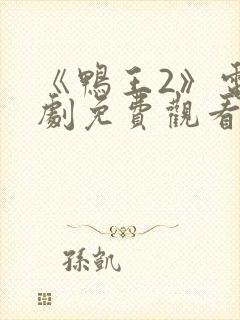 《鴨王2》電
劇免費觀看
孫凱